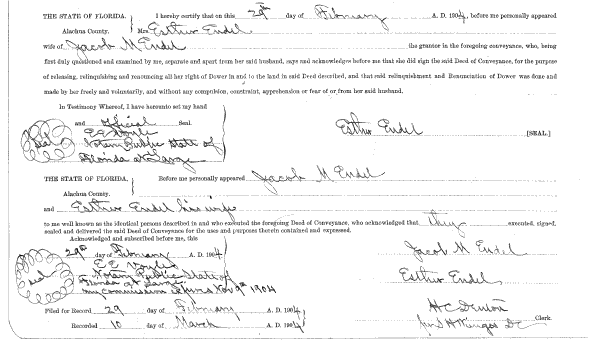 THE STATE OF FLORIDA. I hereby certify that on this 29th day of February A. D. 1904, before me personally appeared
Alachua County. Mrs. Esther Endel
wife of Jacob M Endel the grantor in the foregoing conveyance, who, being
first duly questioned and examined by me, separate and apart from her said husband, says and acknowledges before me that she did sign the said Deed of Conveyance, for the purpose
of releasing, relinquishing and renouncing all her right of Dower in and to the land in said Deed described, and that said relinquishment and Renunciation of Dower was done and
made by her freely and voluntarily, and without any compulsion, constraint, apprehension or fear of or from her said husband.
In Testimony Whereof, I have hereunto set my hand
and official Seal.
E E Voyle Esther Endel [SEAL.]
Seal Notary Public State of
Florida at Large
THE STATE OF FLORIDA. Before me personally appeared Jacob M Endel
Alachua County.
and Esther Endel his wife
to me well known as the identical persons described in and who executed the foregoing Deed of Conveyance, who acknowledged that they executed, signed,
sealed and delivered the said Deed of Conveyance for the uses and purposes therein contained and expressed.
Acknowledged and subscribed before me, this
29th day of February A. D. 1904 Jacob M Endel
E E Voyle
Seal Notary Public State of Esther Endel
Florida at Large
My commission expires Nov 9th 1904
Filed for Record 29 day of February A. D. 1904 H C Denton Clerk.
Recorded 10 day of March A. D. 1904